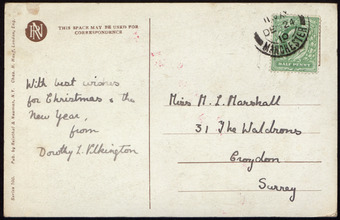 THIS SPACE MAY BE USED FOR
CORRESPONDENCE
With best wishes
for Christmas & the
New Year,
from
Dorothy L. Pilkington
MANCHESTER
DE 24
10
HALF PENNY
Miss M. L. Marshall
31 The Waldrons
Croydon
Surrey